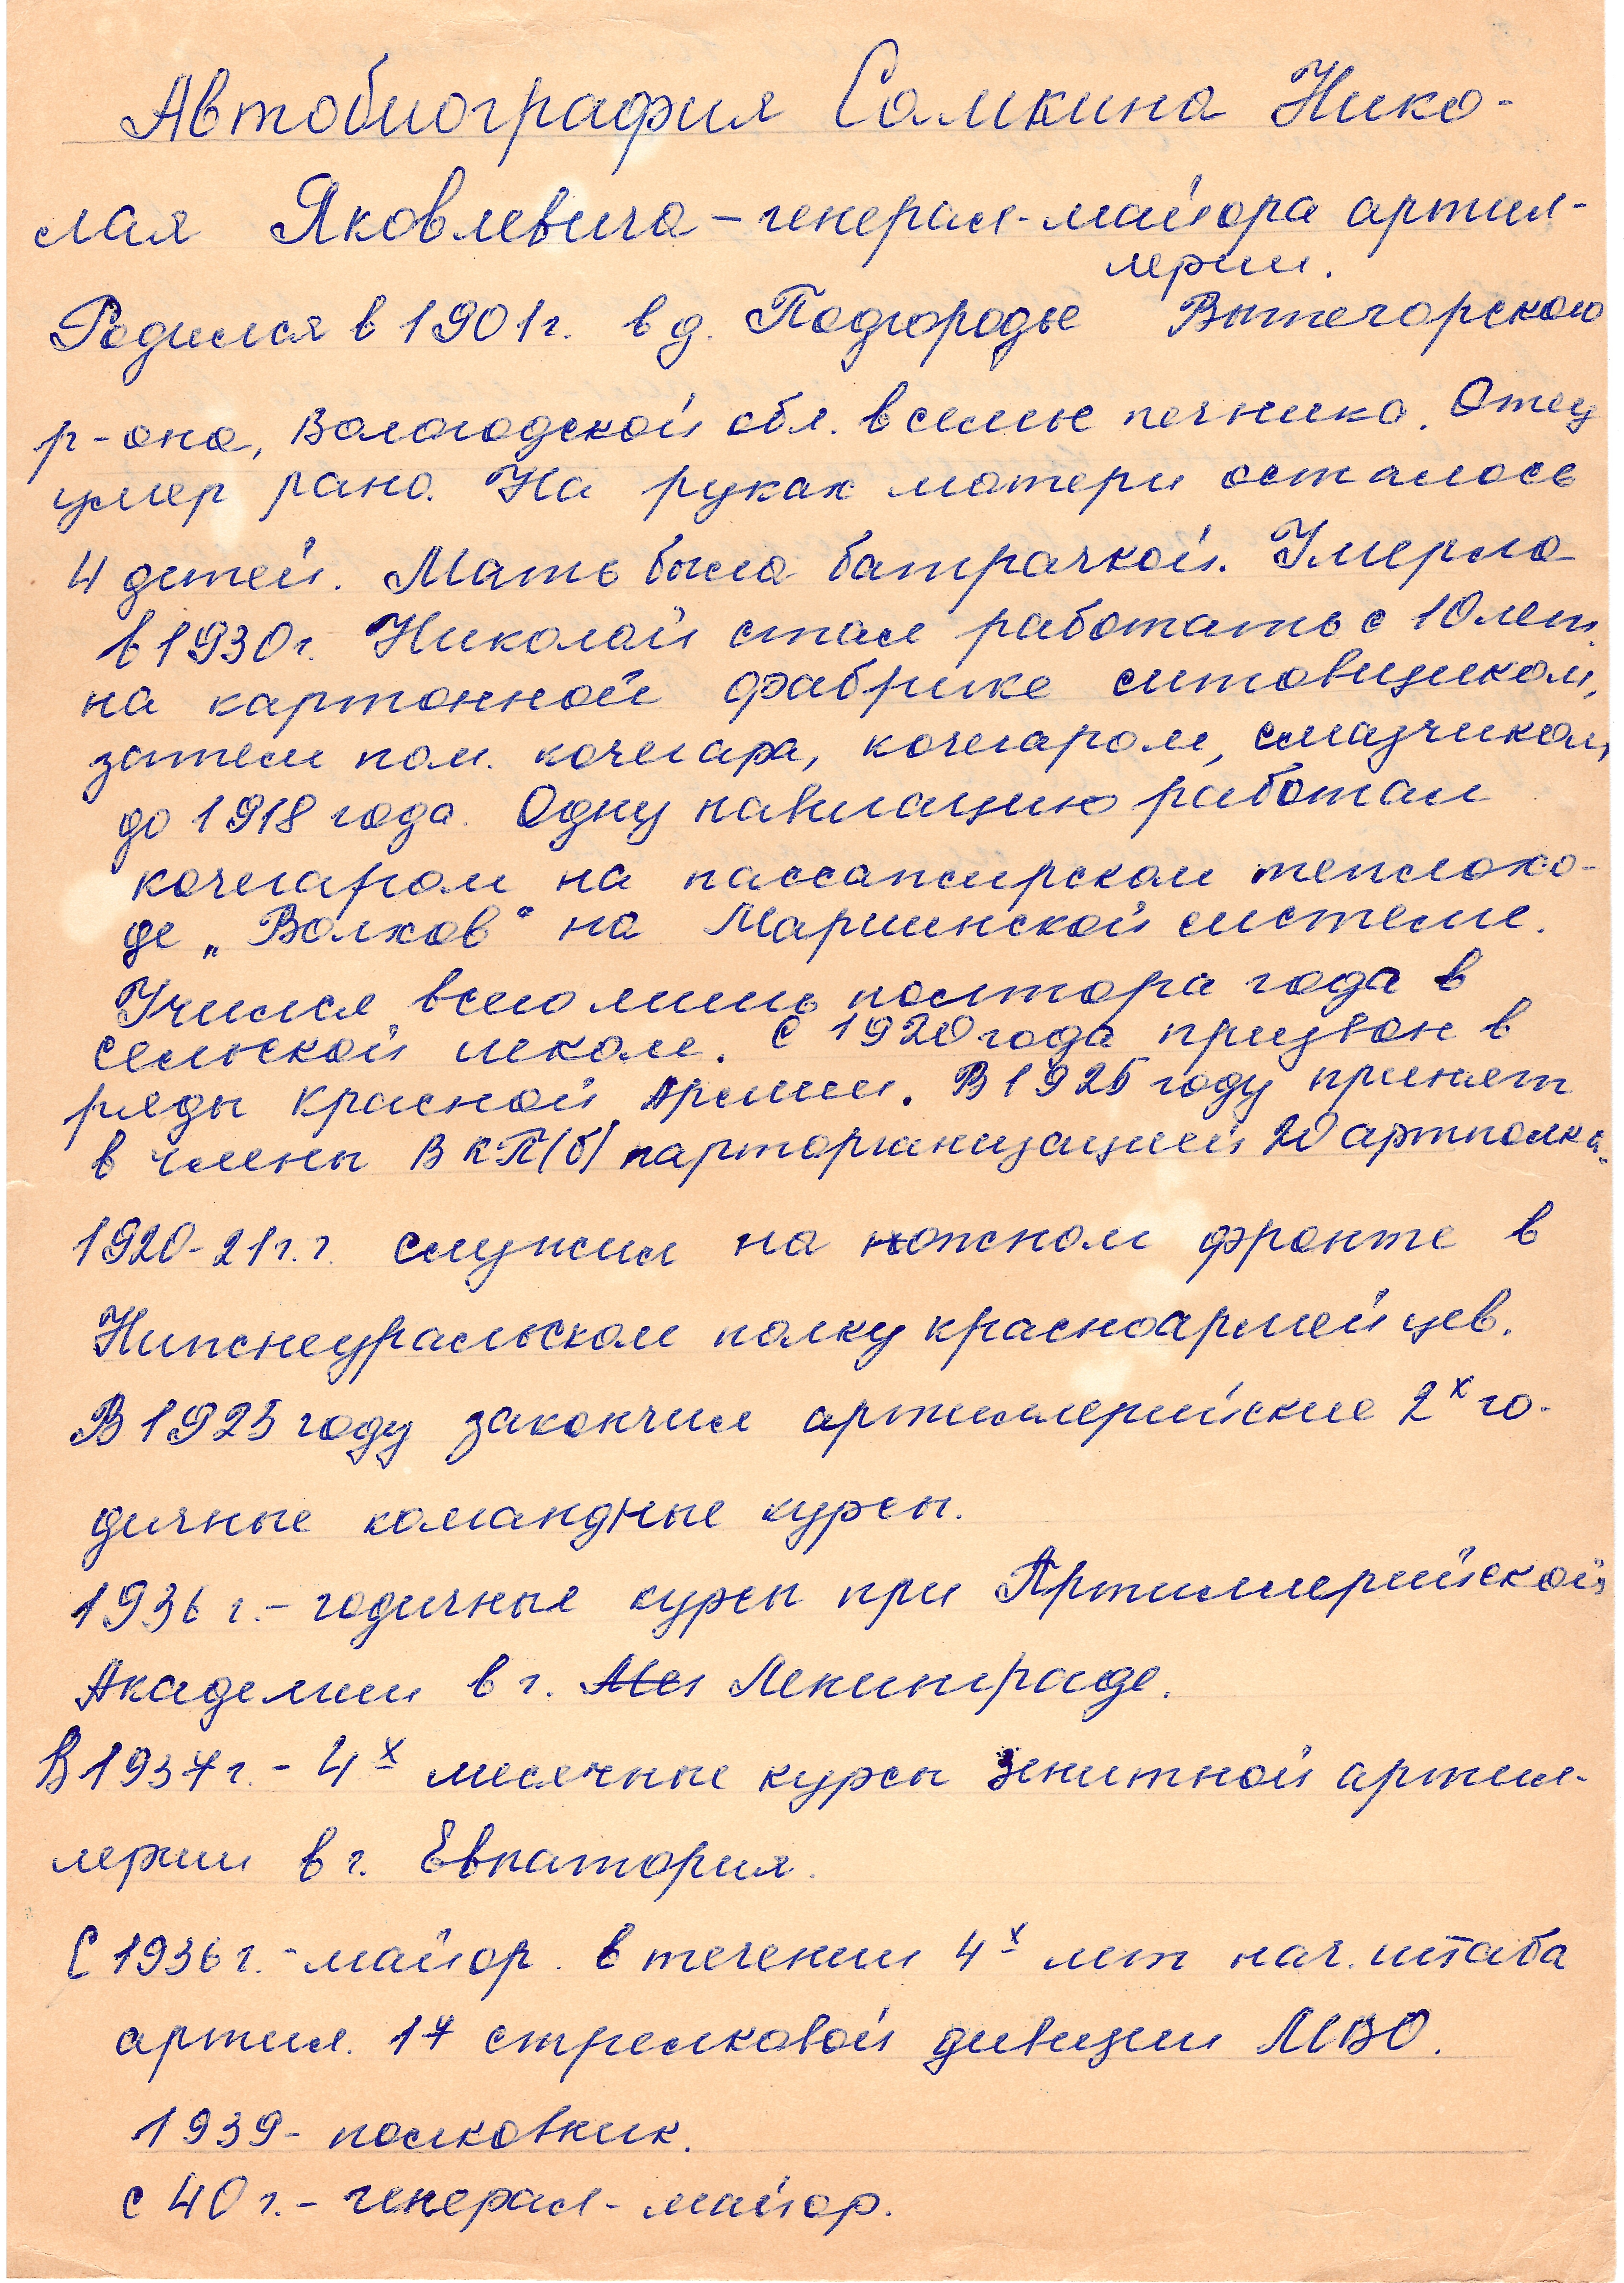 Автобиография Самкина Нико-
лая Яковлевича – генерал-майора артил-
лерии.
Родился в 1901 г. в д. Подгородье Вытегорского
р-она, Вологодской обл. в семье печника. Отец
умер рано. На руках матери осталось
4 детей. Мать была батрачкой. Умерла
в 1930 г. Николай стал работать с 10 лет
на картонной фабрике ситовщиком,
затем пом. кочегара, кочегаром, смазчиком,
до 1918 года. Одну навигацию работал
кочегаром на пассажирском теплохо-
де „Волхов“ на Мариинской системе.
Учился всего лишь полтора года в
сельской школе. С 1920 года призван в
ряды Красной Армии. В 1925 году принят
в члены ВКП(б) парторганизацией 20 артполка.
1920-21 г.г. служил на южном фронте в
Нижнеуральском полку красноармейцев.
В 1923 году закончил артиллерийские 2х го-
дичные командные курсы.
1936 г. – годичные курсы при Артиллерийской
Академии в г. Ленинграде.
В 1937 г. – 4х месячные курсы зенитной артил-
лерии в г. Евпатория.
С 1936 г. – майор. в течении 4х лет нач. штаба
артил. 17 стрелковой дивизии МВО.
1939 – полковник.
с 40 г. – генерал-майор.